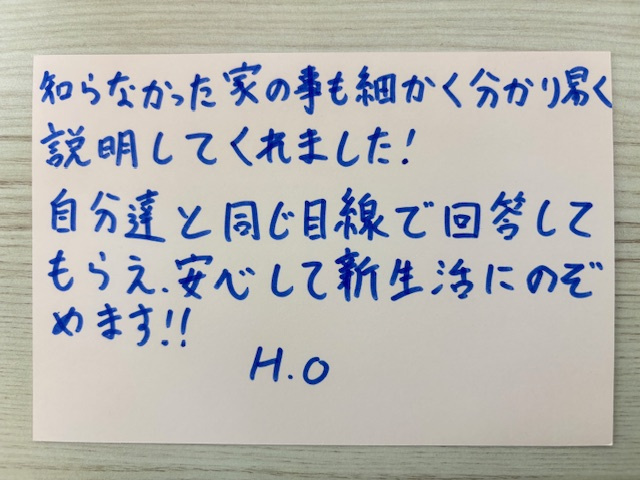 知らなかった家の事も細かく分かり易く
説明してくれました!
自分達と同じ目線で回答して
もらえ、安心して新生活にのぞ
めます!!
H.O